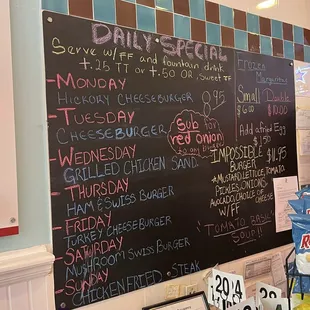 DAILY SPECIAL
Serve w/FF and fountain drink
+.25 TT or +.50 OR, Sweet FF
MONDAY
HICKORY CHEESEBURGER
8.95
TUESDAY
CHEESEBURGER
WEDNESDAY
GRILLED CHICKEN SAND.
THURSDAY
HAM & SWISS BURGER
FRIDAY
TURKEY CHEESEBURGER
SATURDAY
MUSHROOM SWISS BURGER
SUNDAY
CHICKEN FRIED STEAK
Sub
red onion
Frozen
Margaritas
Small Double
$6.00 $10.00
Add a fried Egg
$1.50
IMPOSSIBLE $11.95
BURGER
MUSTARD, LETTUCE, TOMATO
PICKLES, ONIONS
AVOCADO, CHOICE OF CHEESE
W/FF
TOMATO BASIL
SOUP!!
20 4
2